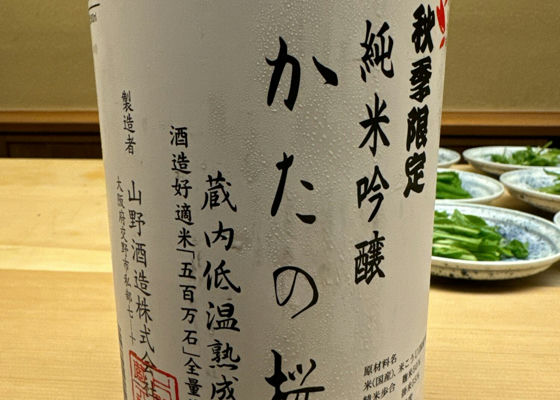 秋季限定
純米吟醸
かたの桜
蔵内低温熟成
酒造好適米「五百万石」全量
製造者 山野酒造株式会社
大阪府交野市私部七ー十
原材料名
米(国産)、米こうじ
精米歩合